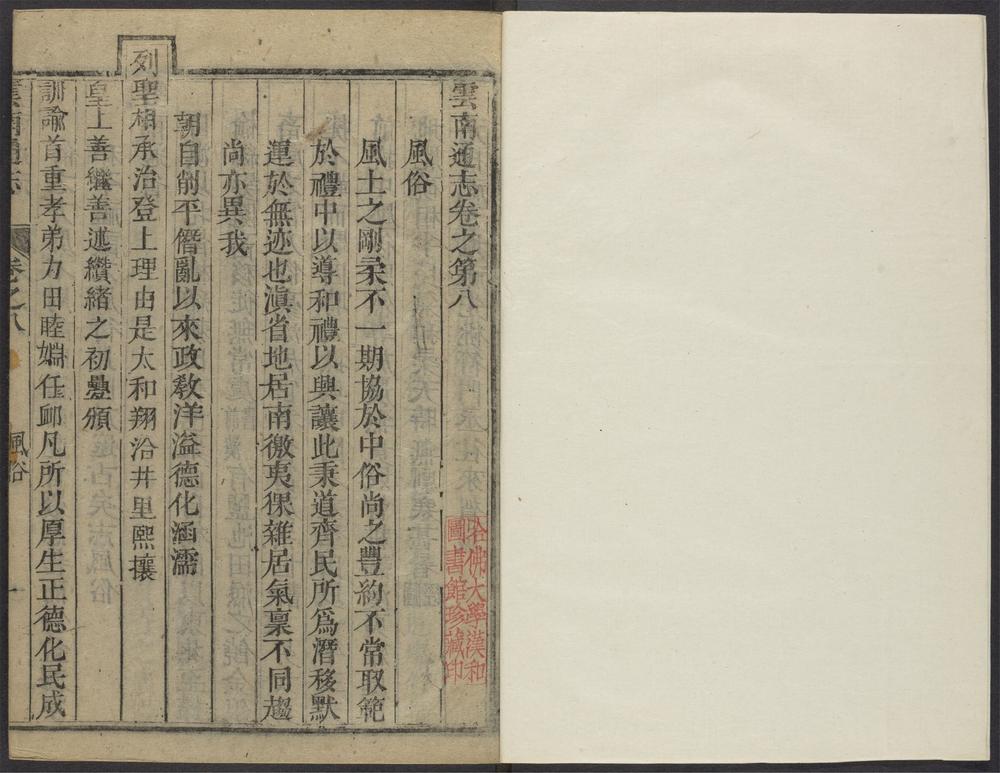 雲南通志卷之第八
風俗
風土之剛柔不一期協於中俗尚之豐約不常取範
於禮中以導和禮以興讓此秉道齊民所爲潛移默
運於無迹也滇省地居南徼夷猓雜居氣稟不同趨
尚亦異我
朝自削平僭亂以來政敎洋溢德化涵濡
列聖相承治登上理由是太和翔洽井里熙攘
皇上善繼善述纘緒之初疊頒
訓諭首重孝弟力田睦婣任䘏凡所以厚生正德化民成
雲南通志
卷之八
風俗
一
哈佛大學漢和
圖書館珍藏印